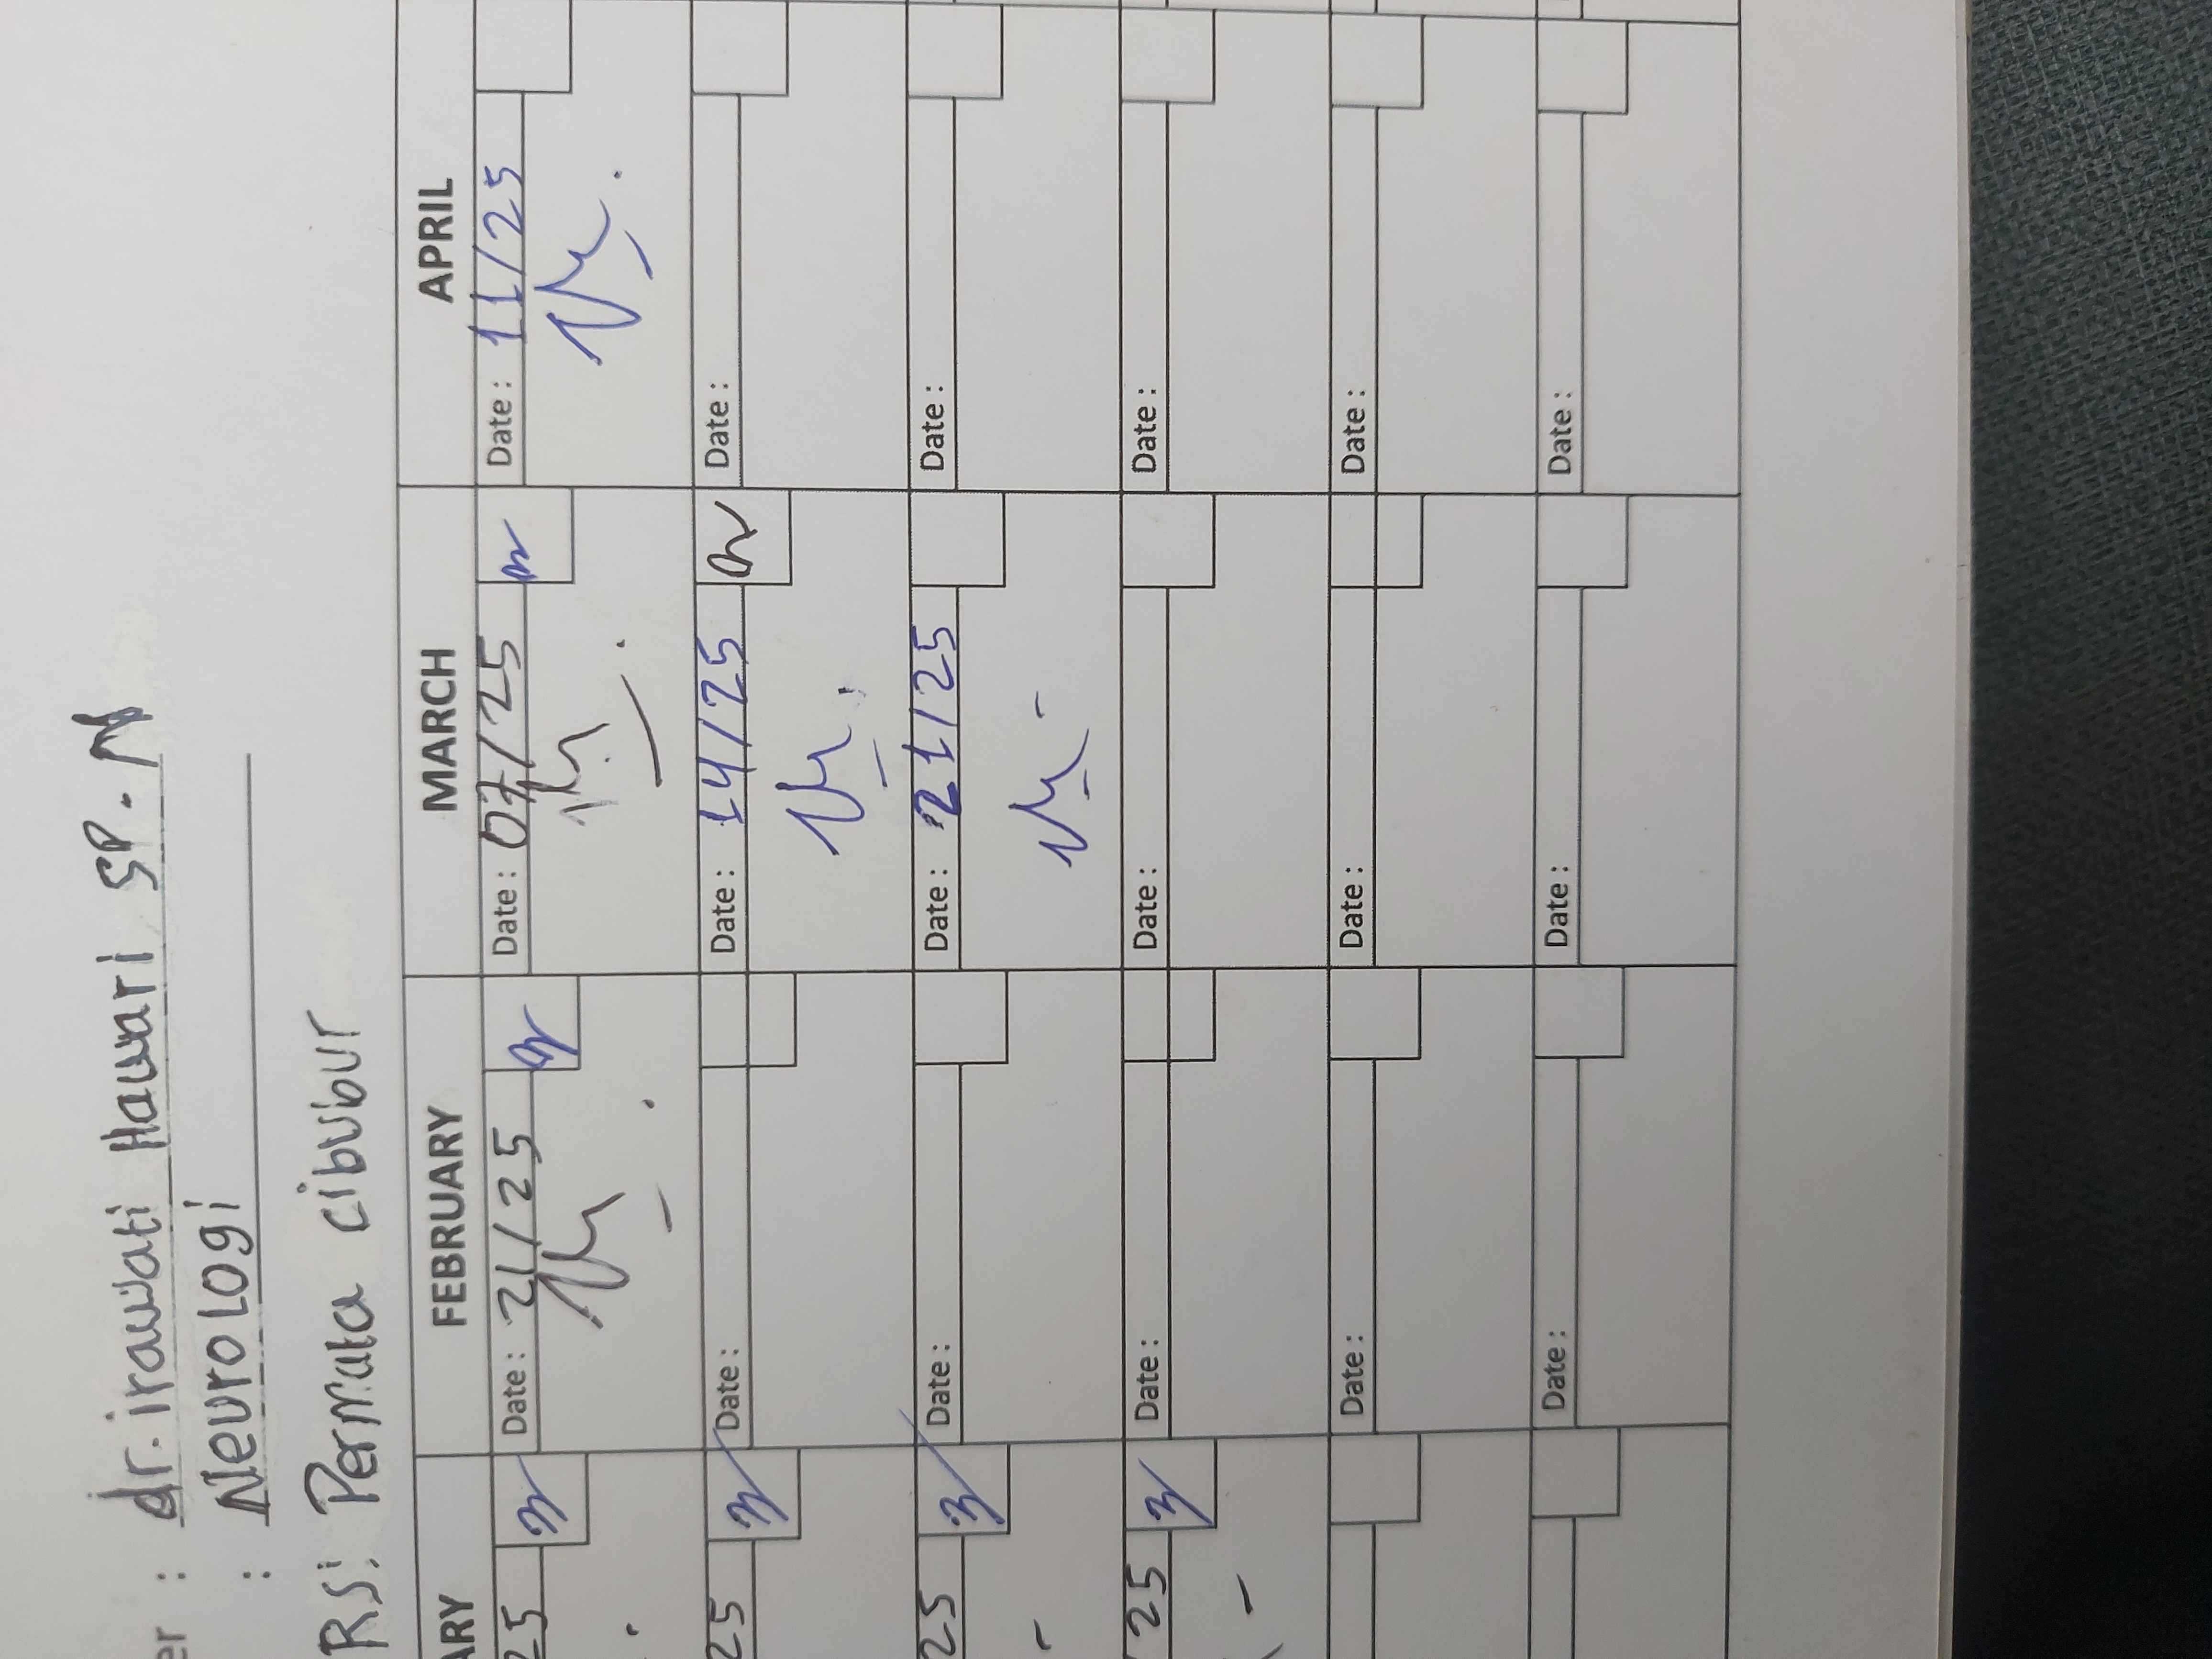 er : dr. irawati Hawari SP. N
: Neurologi
RS: Permata cibubur
ARY FEBRUARY MARCH APRIL
25 Date : 21/25 Date : 07/25 Date : 11/25
25 Date : Date : 14/25 Date :
25 Date : Date : 21/25 Date :
25 Date : Date : Date :
Date : Date : Date :
Date : Date : Date :